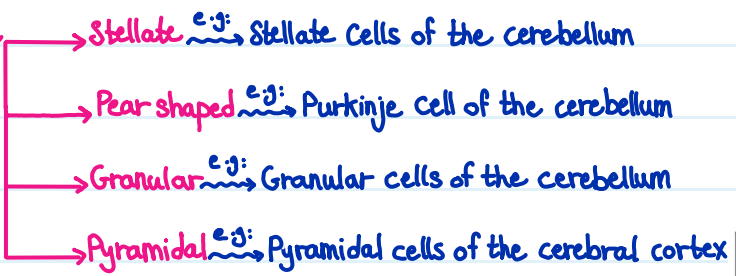 Stellate e.g: Stellate Cells of the cerebellum
Pear shaped e.g: Purkinje Cell of the cerebellum
Granular e.g: Granular cells of the cerebellum
Pyramidal e.g: Pyramidal cells of the cerebral cortex